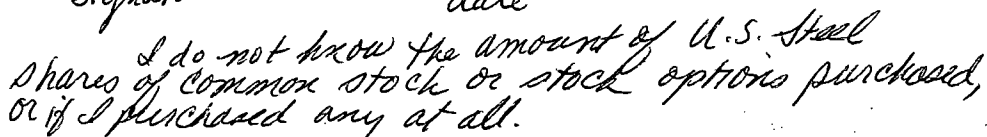 date
I do not know the amount of U.S. Steel
shares of common stock or stock options purchased,
or if I purchased any at all.